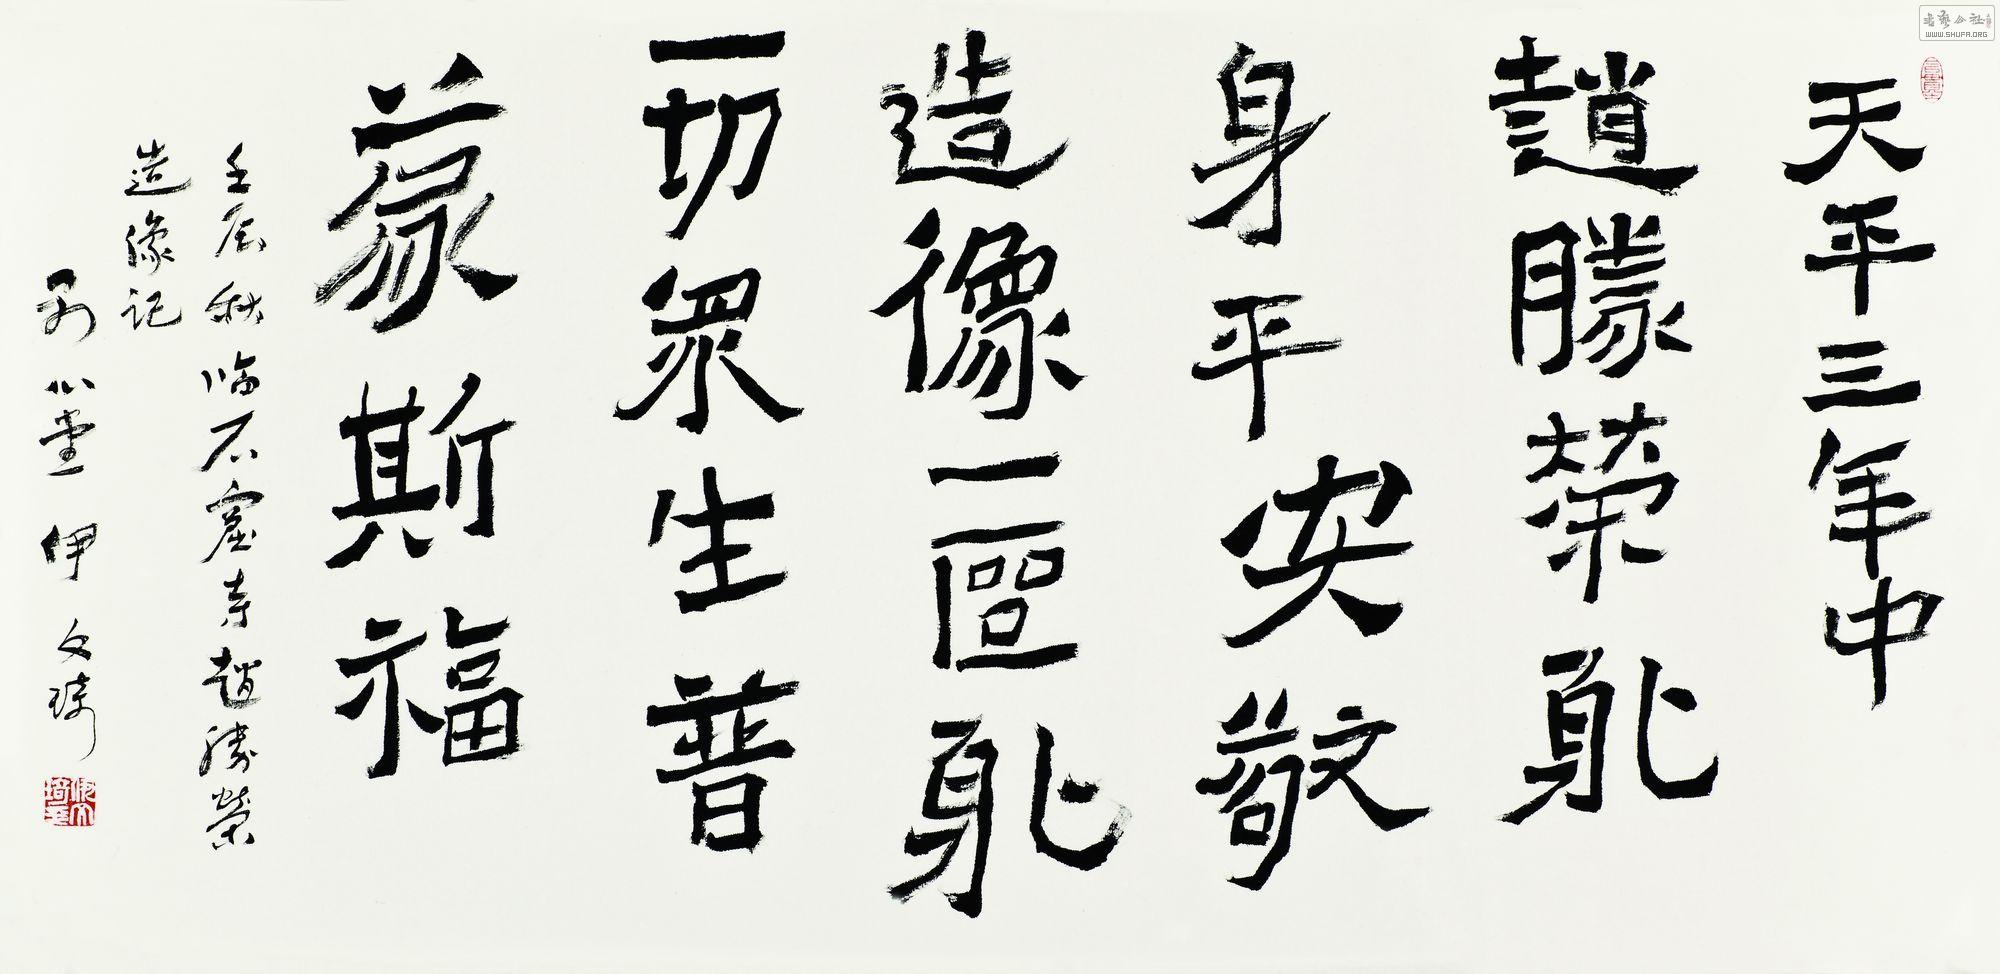 天平三年中
趙勝榮
身平安敬
造像一區
一切眾生普
蒙斯福
壬辰秋临石窟寺趙勝榮
造像记
心堂 伊文琦
书艺公社
WWW.SHUFA.ORG